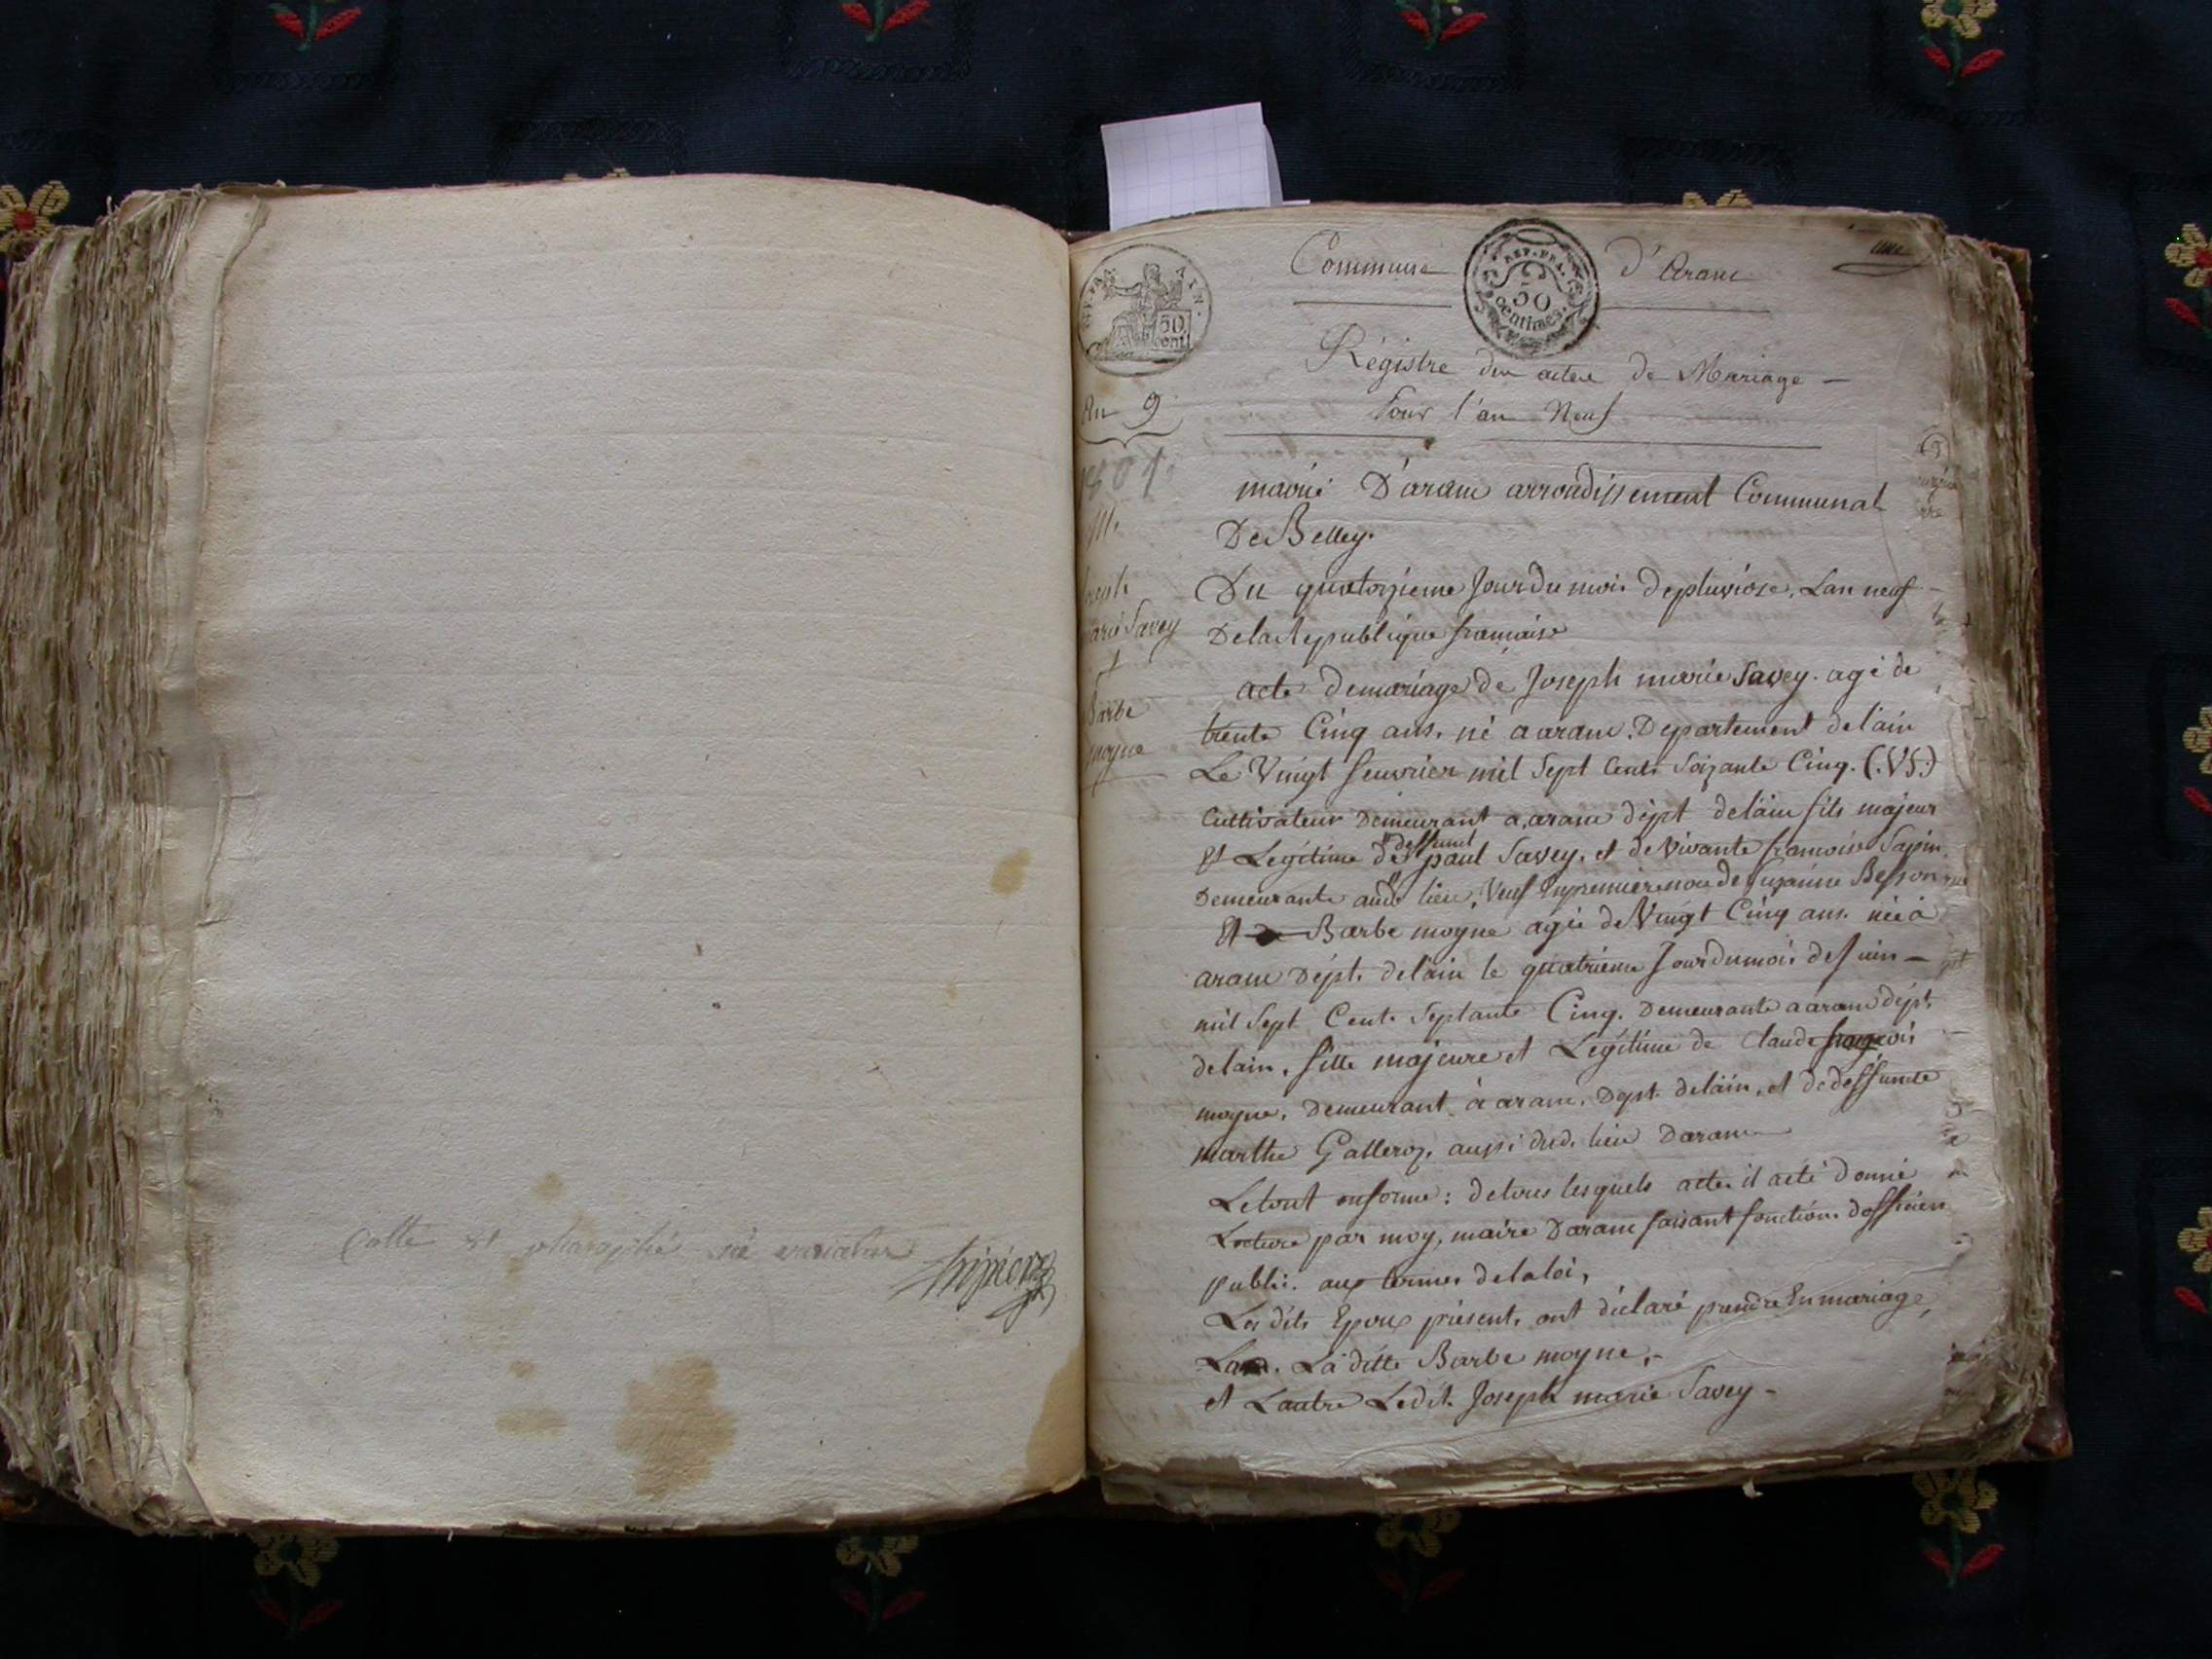 Cotté et
Commune d'Aranc
une
REP. FRA.
50
Centimes.
AIN.
50
cent
Régistre des actes de Mariage —
Pour l'an Neuf
An 9
1801.
mairie D'aranc arrondissement Communal
De Belley.
Du quatorzieme Jour du mois de pluviose, Lan neuf
De la Republique francaise
Joseph
marie Savey
+
Barbe
moyne
acte de mariage de Joseph marie Savey. agé de
trente Cinq ans. né a aranc. Departement delain
Le Vingt feuvrier mil Sept Cents Soixante Cinq. (:VS:)
Cultivateur Demeurant a aranc dépt delain fils majeur
Et Legitime de deffunt paul Savey, et de Vivante francoise Sapin
Demeurante aud. lieu, Veuf En premiere noce de Suzanne Besson
Et Barbe moyne agée de Vingt Cinq ans. née à
aranc Dépt. delain le quatrieme Jour du mois de Juin —
mil Sept Cent. Septante Cinq. Demeurante a aranc dépt.
delain, fille majeure et Legitime de Claude francois
moyne, Demeurant à aranc, Dept. delain, et de deffuncte
marthe Galleroz. aussi dud. lieu Daranc
Le tout en forme: de tous lesquels actes il a été Donné
Lecture par moy, maire Daranc faisant fonctions dofficier
public. aux termes de la loi,
Les dits Epoux présents. ont déclaré prendre En mariage,
La ditte Barbe moyne,-
et Lautre Ledit. Joseph marie Savey -